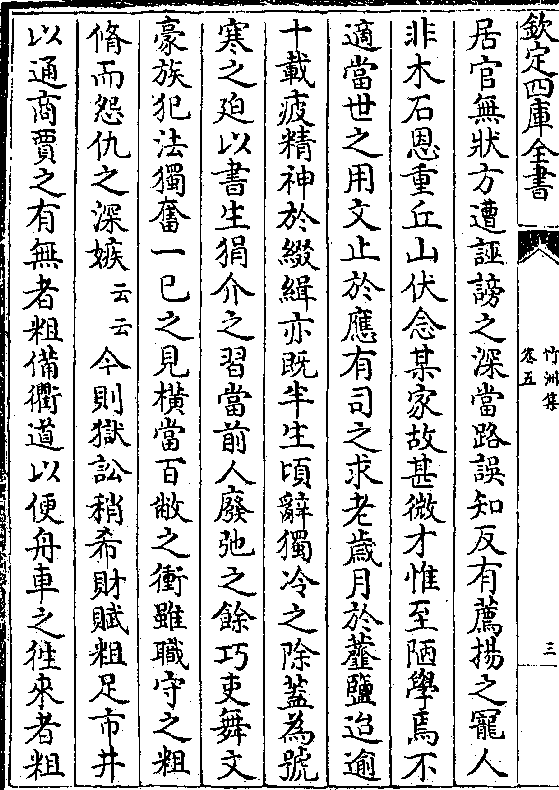 欽定四庫全書
竹洲集
卷五
三
居官無狀方遭誣謗之深當路誤知反有薦揚之寵人
非木石恩重丘山伏念某家故甚微才惟至陋學焉不
適當世之用文止於應有司之求老歳月於虀鹽迨逾
十載疲精神於綴緝亦既半生頃辭獨冷之除蓋為號
寒之廹以書生狷介之習當前人廢弛之餘巧吏舞文
豪族犯法獨奮一已之見横當百敝之衝雖職守之粗
脩而怨仇之深嫉云云今則獄訟稍希財賦粗足市井
以通商賈之有無者粗備衢道以便舟車之徃來者粗